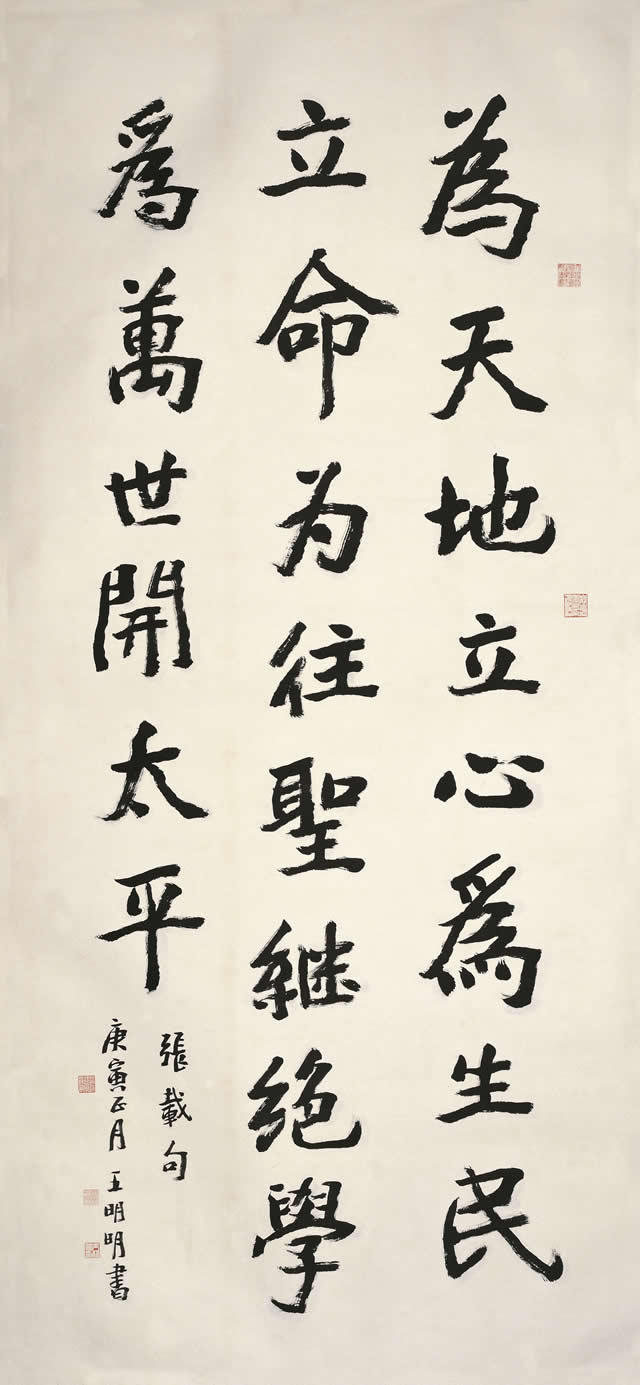 為天地立心爲生民
立命为往聖継絶學
爲萬世開太平
張載句
庚寅正月王明明書